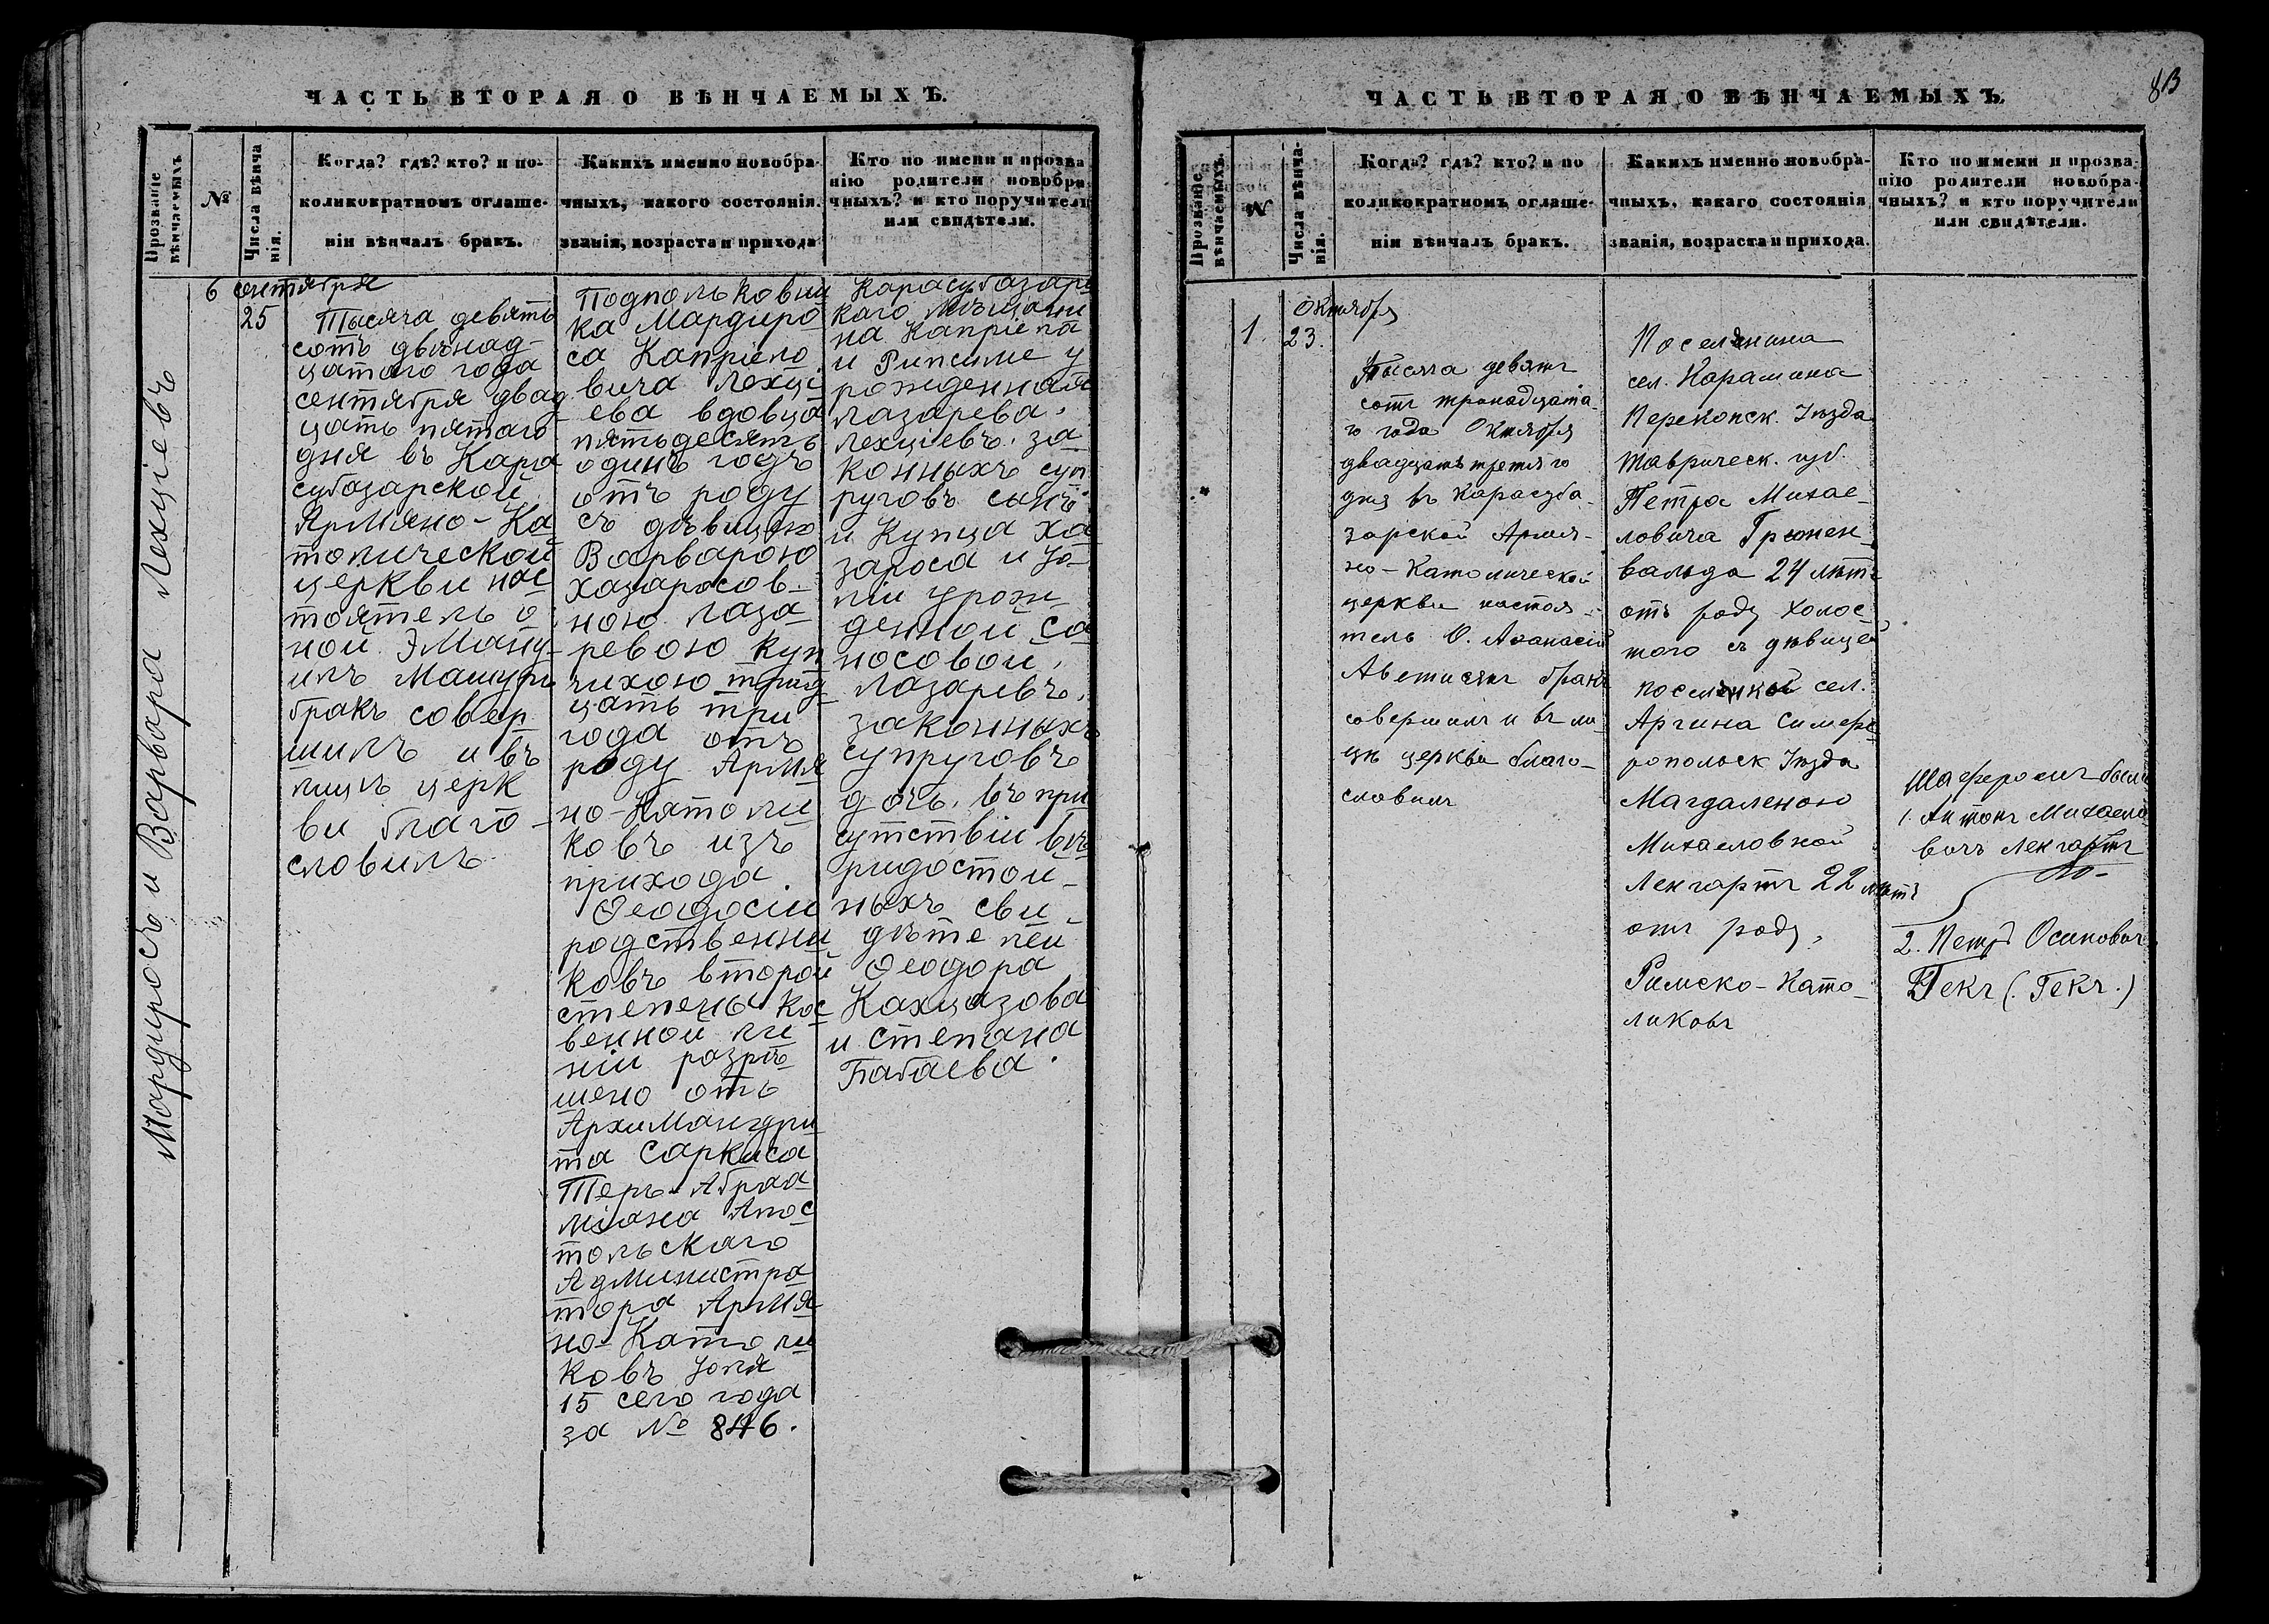 ЧАСТЬ ВТОРАЯ О ВѢНЧАЕМЫХЪ.
Прозваніе вѣнчаемыхъ
№
Числа вѣнча
нія.
Когда? гдѣ? кто? и по-
коликократномъ оглаше-
ніи вѣнчалъ бракъ.
Какихъ именно новобра-
чныхъ, какого состоянія.
званія, возраста и прихода
Кто по имени и прозва
нію родители новобра
чныхъ? и кто поручители
или свидѣтели.
Мардиросъ и Варвара Лехціевъ
6 сентября
25
Тысяча девять
сотъ двѣнад-
цатого года
сентября двад
цать пятого
дня въ Кара
субазарской
Армяно-Ка
толической
церкви нас
тоятель о
ной Эману-
илъ
бракъ совер
шилъ и въ
лицѣ церк
ви благо-
словилъ
Подпольковни
ка Мардиро
са Капріело
вича Лехці
ева вдовца
пятьдесятъ
одинъ годъ
отъ роду
съ дѣвицею
Варварою
Хазаросов-
ною Лаза
ревою куп
чихою трид
цать три
года отъ
роду Армя
но-Католи
ковъ изъ
прихода.
Ѳеодосіи
родственни
ковъ второй
степены кос
венной ли
ніи разрѣ
шено отъ
Архимандри
та Саркиса
Теръ-Абраа
міана Апос
тольскаго
Администра
тора Армя
но-Католи
ковъ Юля
15 сего года
за № 846.
Карасубазарс
каго мѣщани
на Капріела
и Рипсиме у
рожденная
Лазарева.
Лехціевъ. за
конныхъ суп
руговъ сынъ
и Купца Ха
зароса и Ю-
лии урож
денной Са
носовой,
Лазаревъ,
законныхъ
супруговъ
дочь, въ при
сутствіи вѣ
ридостой-
ныхъ сви-
дѣтелей
Ѳеодора
Кахцазова
и Степана
Бабаева.
ЧАСТЬ ВТОРАЯ О ВѢНЧАЕМЫХЪ.
83
Прозваніе
вѣнчаемыхъ.
№
Числа вѣнча-
нія.
Когда? гдѣ? кто? и по
коликократномъ оглаше-
ніи вѣнчалъ бракъ.
Какихъ именно новобра-
чныхъ, какаго состоянія
званія, возраста и прихода.
Кто по имени и прозва-
нію родители новобра-
чныхъ? и кто поручители
или свидѣтели.
1.
Октября
23.
Тысяча девять
сотъ тринадцата-
го года Октября
двадцать третяго
дня въ Карасуба-
зарской Армя-
но-Католической
церкви настоя-
тель О. Аѳанасій
Аветисянъ бракъ
совершилъ и въ ли-
цѣ церкви благо-
словилъ
Поселянина
сел. Карамина
Перекопск. Уѣзда
Таврическ. губ.
Петра Михае-
ловича Грюнен-
вальда 24 лѣтъ
отъ роду холос-
того съ дѣвицей
поселянкой сел.
Аргина Симфе
ропольск Уѣзда
Магдаленою
Михаеловной
Ленгартъ 22 лѣтъ
отъ роду,
Римско-Като-
ликовъ
Шаферомъ были
1. Антонъ Михаело
вичъ Ленгартъ
2. Петръ Осиповичъ
Гекъ (Гекъ.)